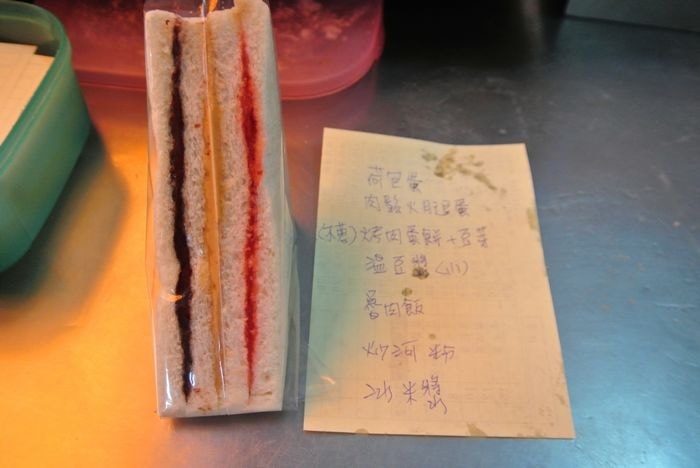 荷包蛋
肉鬆火腿蛋
烤肉蛋餅+豆芽
溫豆漿(小)
魯肉飯
炒河粉
冰米漿